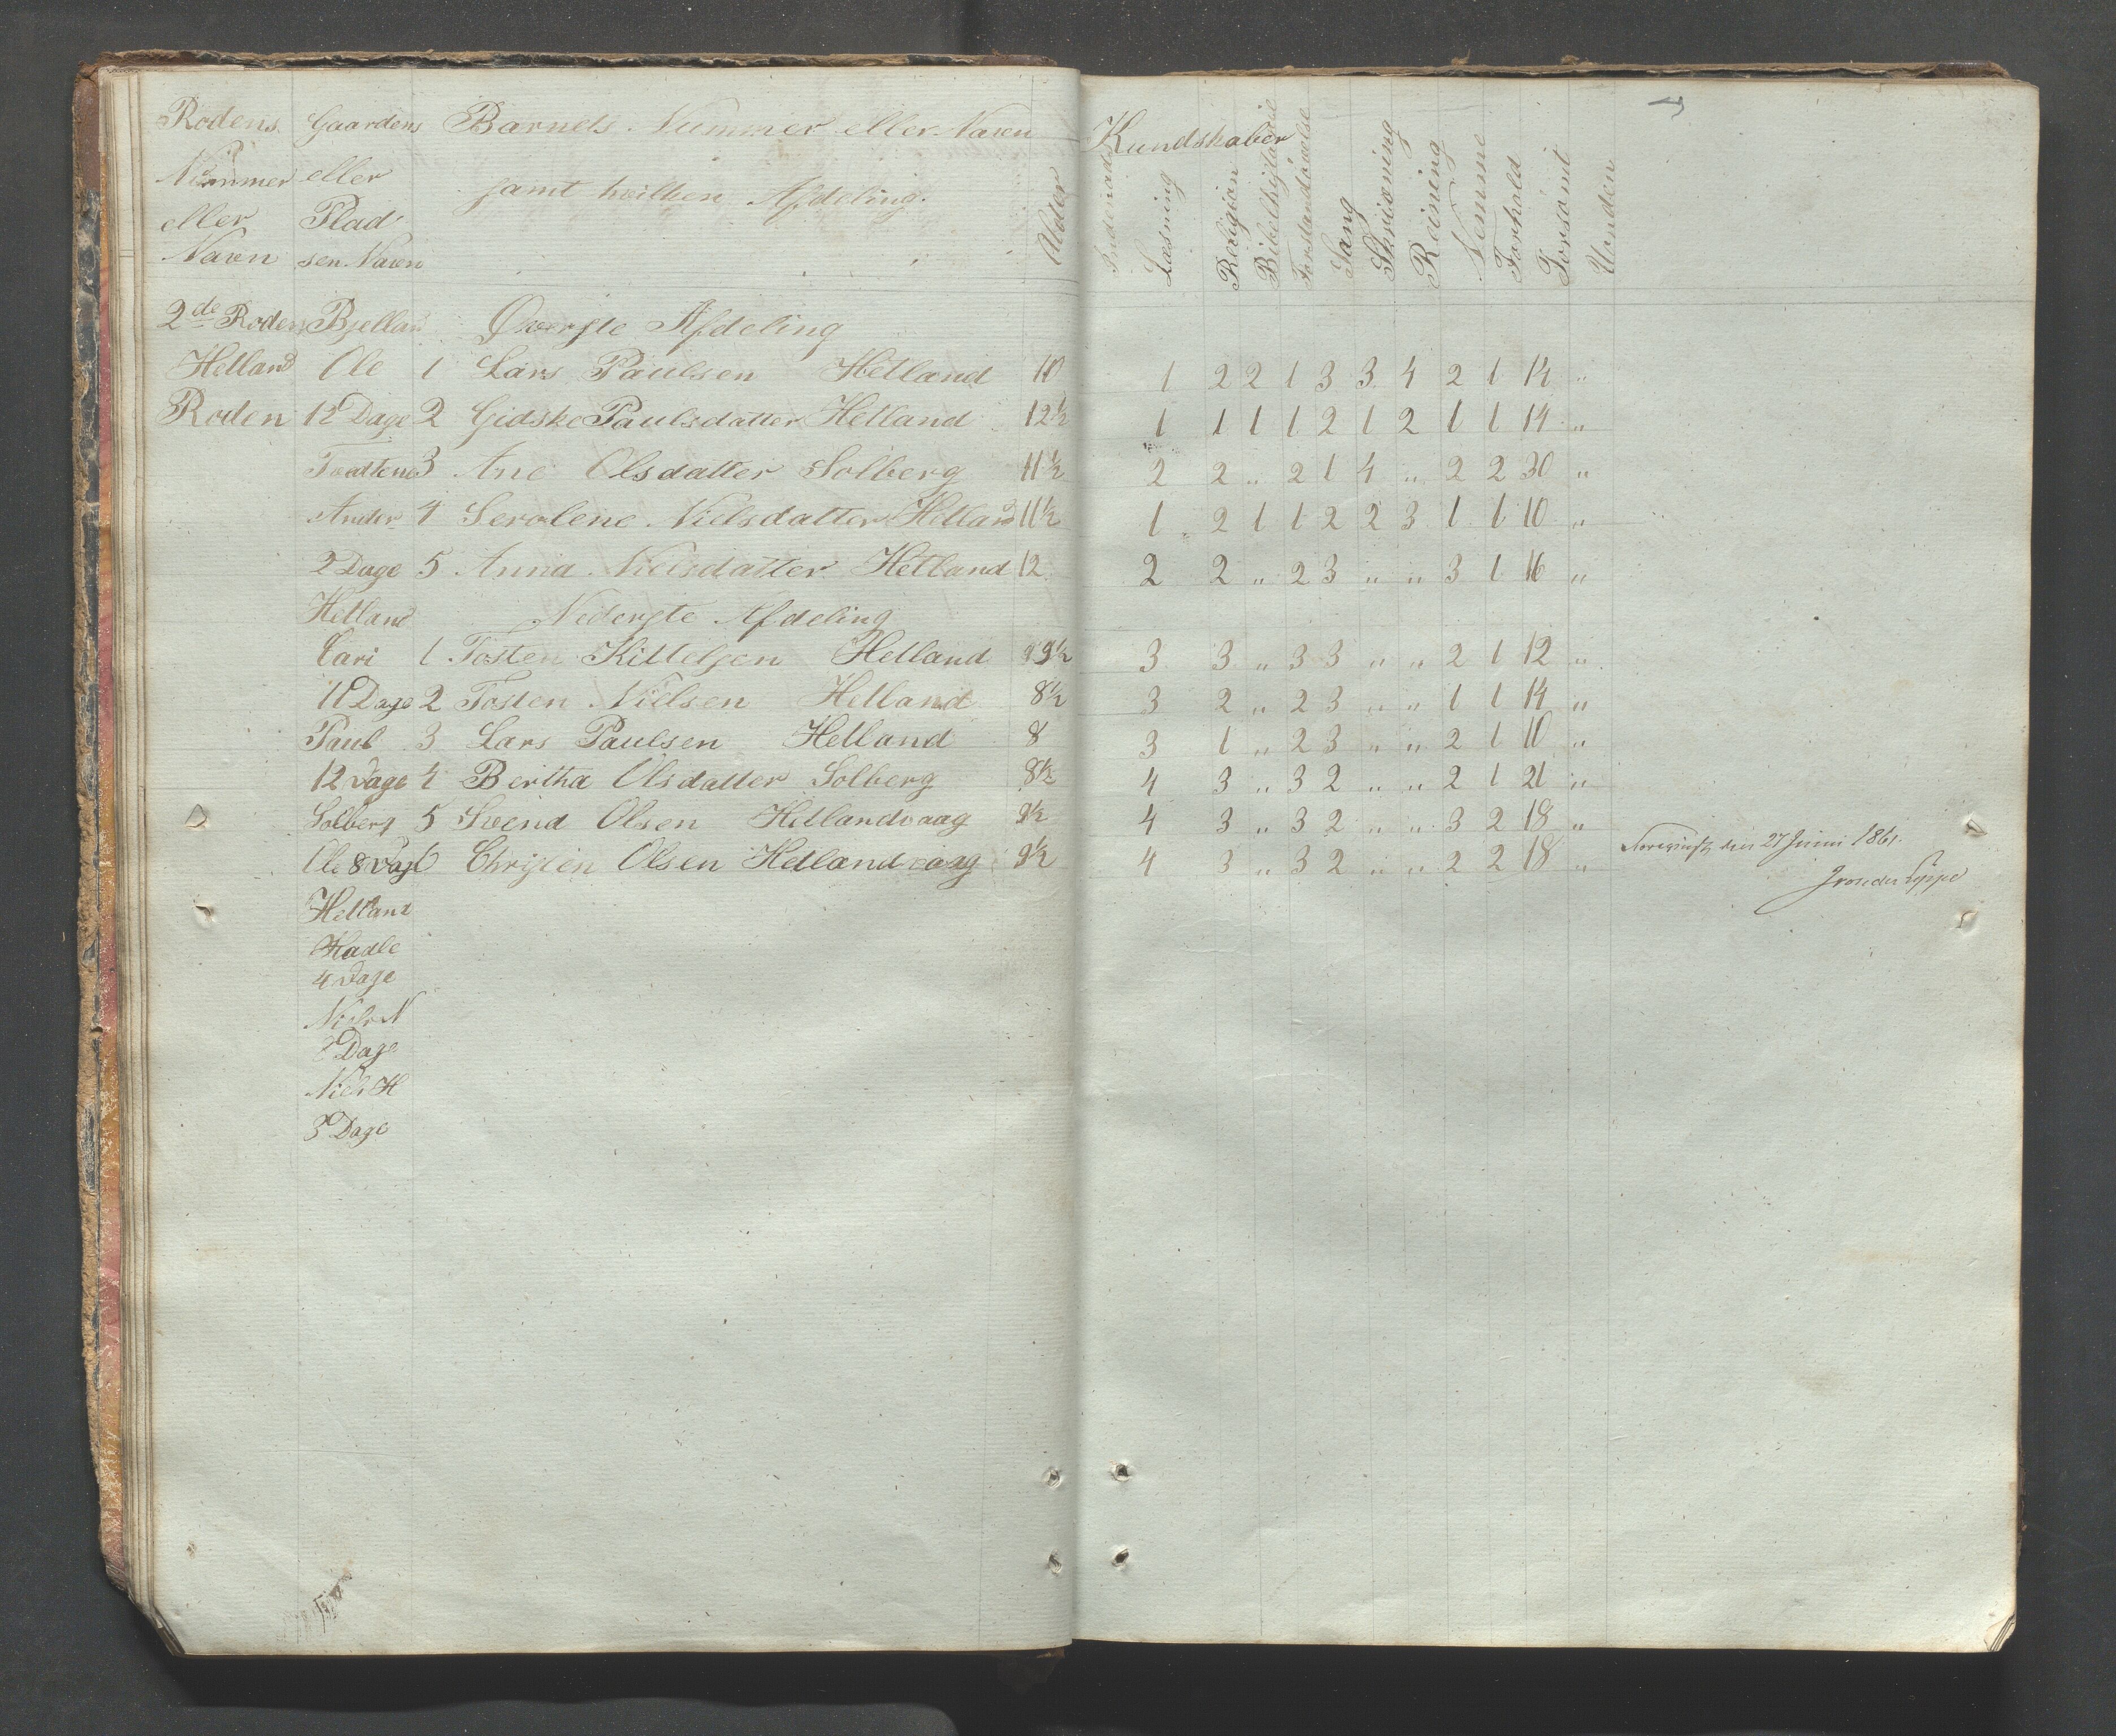 Rodens Gaardens Barnets Nummer eller Navn
Nummer eller samt hvilken Afdeling.
eller Plad
Navn sen Navn Alder
Kundskaber
Læsning Religion Forstandsøvelse Sang Skrivning Reining Nemme Forhold Forsømt Uonden
2de Roden Bjellan Øverste Afdeling
Helland Ole 1 Lars Paulsen Hetland 10 1 2 2 1 3 3 4 2 1 14 "
Roden 12 Dage 2 Gidske Paulsdatter Hetland 12½ 1 1 1 1 2 1 2 1 1 14 "
3 Ane Olsdatter Solberg 11½ 2 2 " 2 1 4 " 2 2 30 "
Ander 4 Serolene Nielsdatter Hetland 11½ 1 2 1 1 2 2 3 1 1 10 "
2 Dage 5 Anna Nielsdatter Hetland 12 2 2 " 2 3 " " 3 1 16 "
Helland Nederste Afdeling
Cari 1 Tosten Kittelsen Helland 9½ 3 3 " 3 3 " " 2 1 12 "
11 Dage 2 Tosten Nielsen Helland 8½ 3 2 " 2 3 " " 1 1 14 "
Paul 3 Lars Paulsen Helland 8 3 1 " 2 3 " " 2 1 10 "
12 Dage 4 Bertha Olsdatter Solberg 8½ 4 3 " 3 2 " " 2 1 21 "
Solberg 5 Svend Olsen Hetlandvaag 9½ 4 3 " 3 2 " " 3 2 18 "
Ole 8 Dage 6 Christen Olsen Hetlandvaag 9½ 4 3 " 3 2 " " 2 2 18 "
den 27 Juni 1861.
Helland
Kadle
4 Dage
Niels N
2 Dage
Niels H
3 Dage